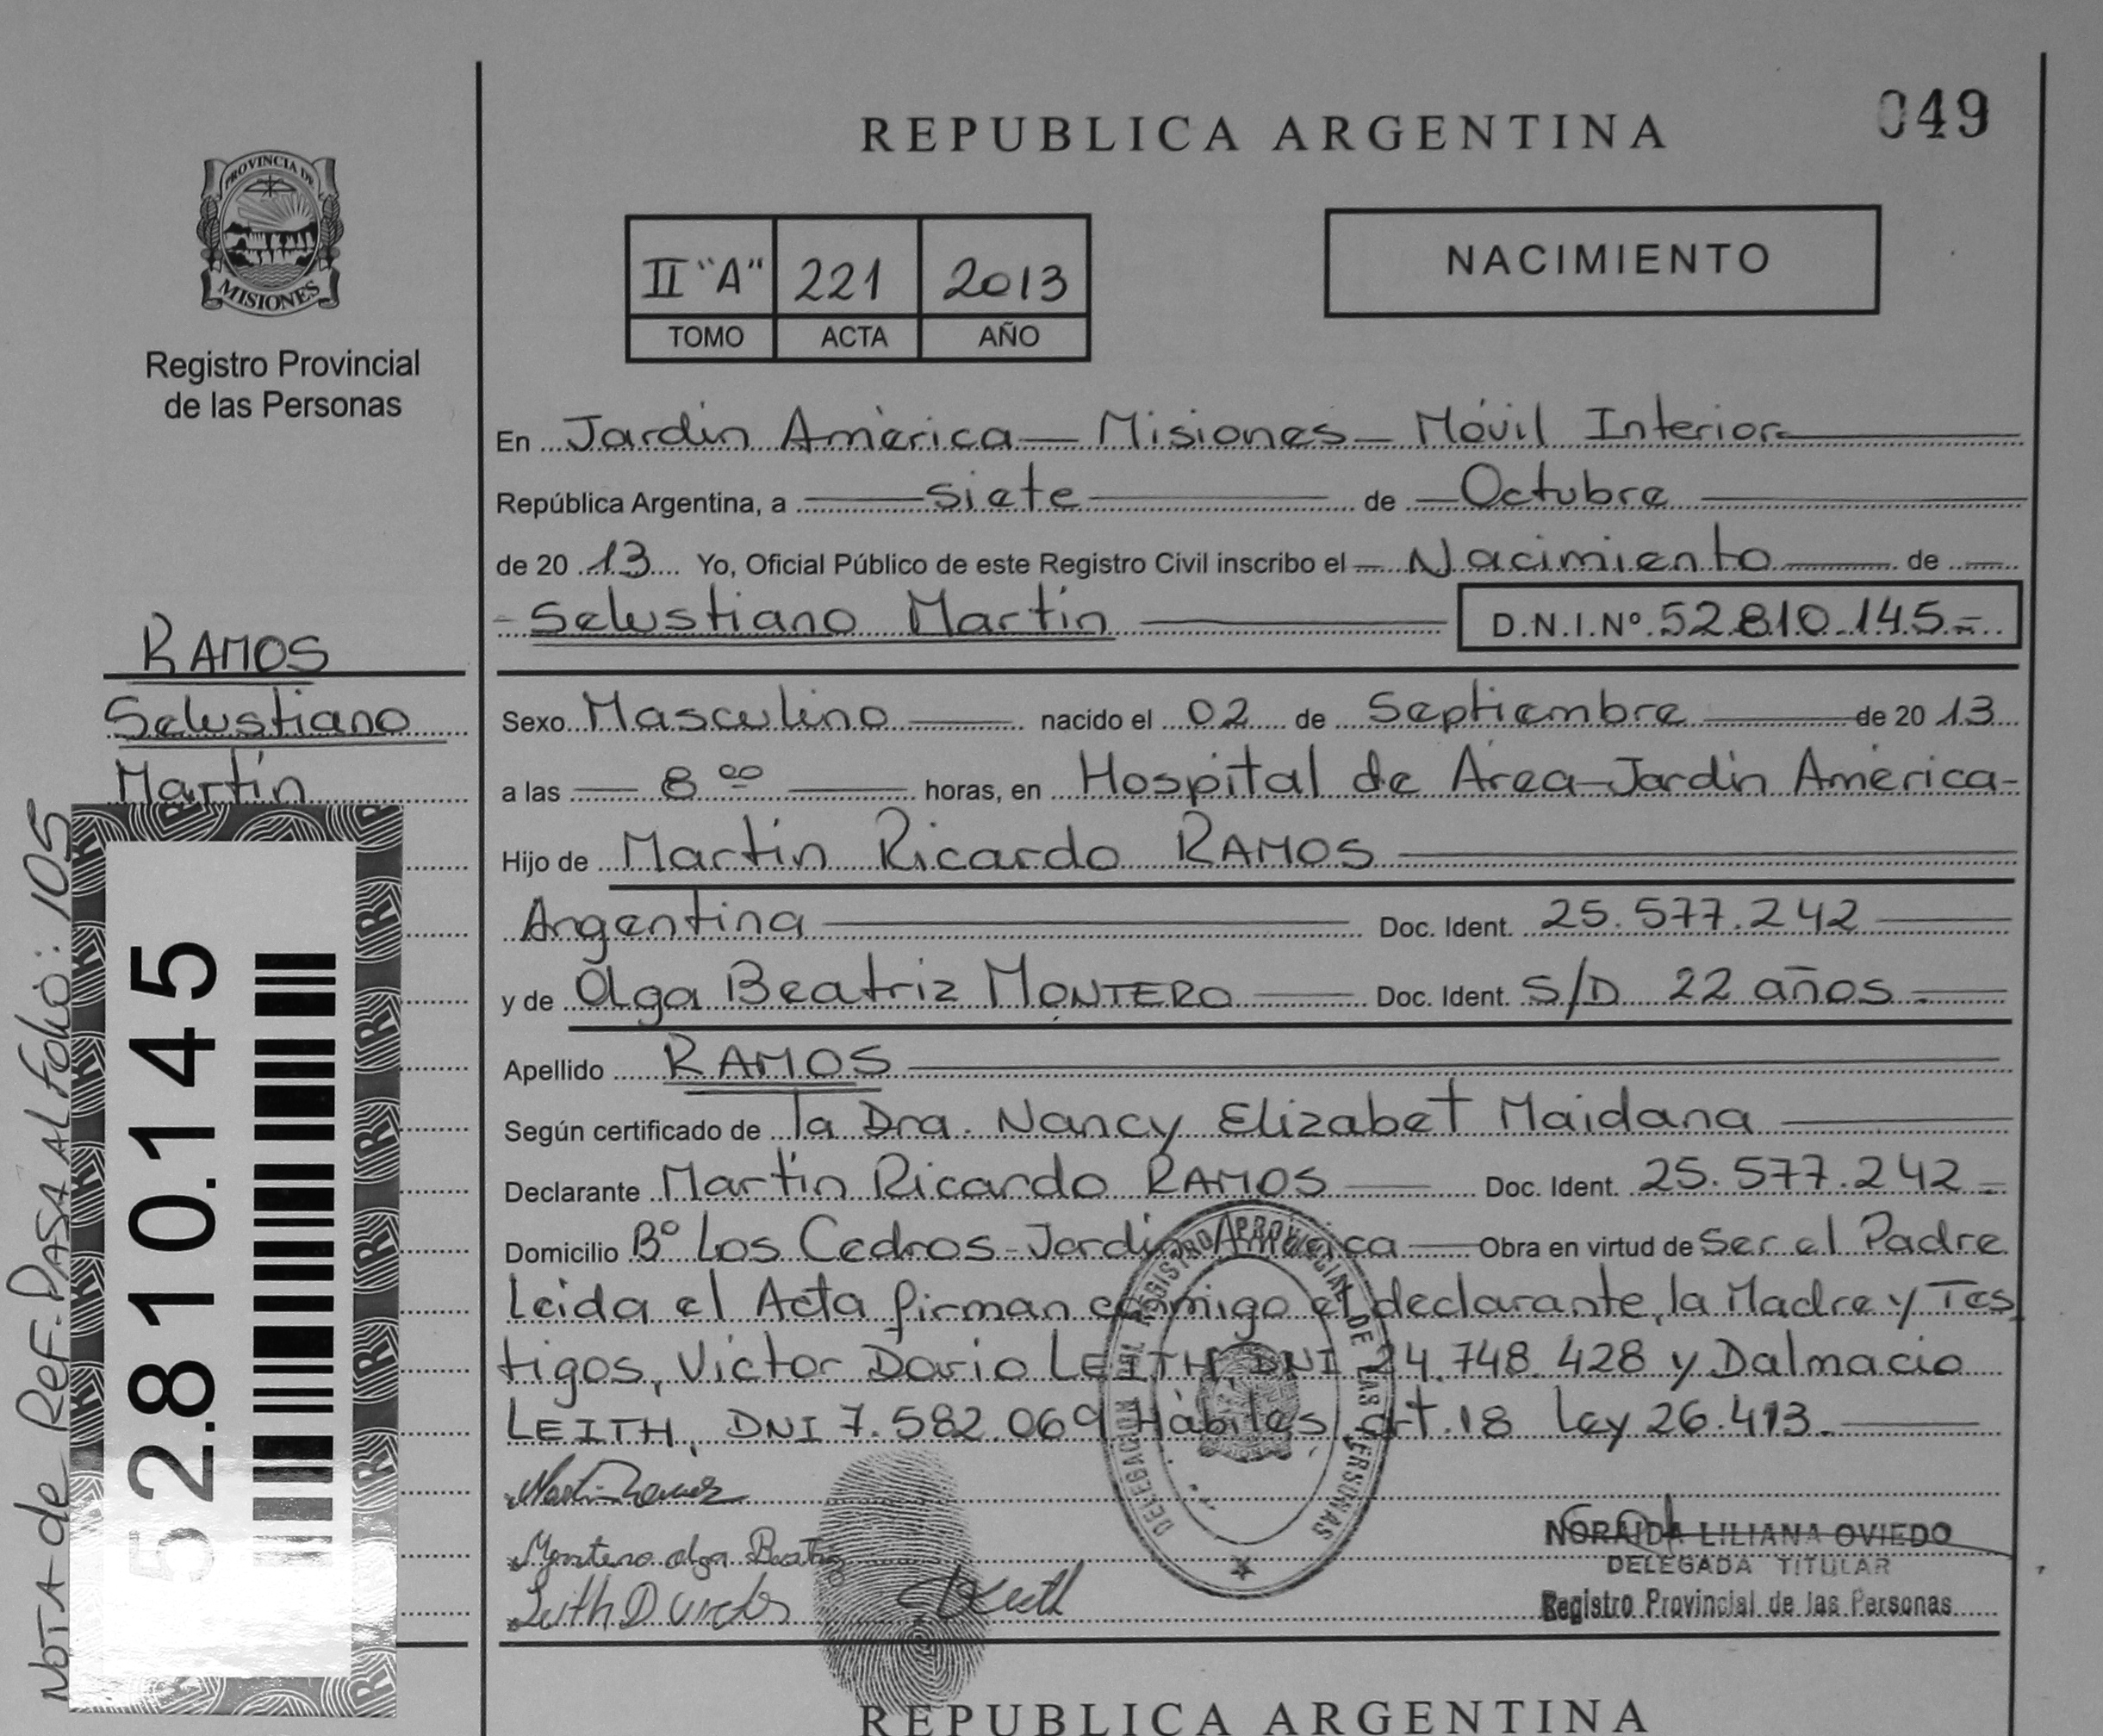 049
REPUBLICA ARGENTINA
PROVINCIA DE
MISIONES
Registro Provincial
de las Personas
II "A" 221 2013
TOMO ACTA AÑO
NACIMIENTO
En Jardín América - Misiones - Móvil Interior
República Argentina, a siete de Octubre
de 2013 Yo, Oficial Público de este Registro Civil inscribo el Nacimiento de
Selustiano Martín D.N.I.Nº 52.810.145.-
RAMOS
Selustiano
Martín
Sexo Masculino nacido el 02 de Septiembre de 2013
a las 8 00 horas, en Hospital de Área - Jardín América -
Hijo de Martín Ricardo RAMOS
Argentina Doc. Ident. 25.577.242
y de Olga Beatriz MONTERO Doc. Ident. S/D 22 años
Apellido RAMOS
Según certificado de la Dra. Nancy Elizabet Maidana
Declarante Martín Ricardo RAMOS Doc. Ident. 25.577.242
Domicilio Bº Los Cedros - Jardín América Obra en virtud de Ser el Padre
Leida el Acta firman conmigo el declarante, la Madre y Tes
tigos, Victor Dario LEITH, DNI 24.748.428 y Dalmacio
LEITH, DNI 7.582.069 Hábiles, art. 18 Ley 26.413.
Montero olga Beatriz
NORAIDA LILIANA OVIEDO
DELEGADA TITULAR
Registro Provincial de las Personas
DELEGACION DEL REGISTRO PROVINCIAL DE LAS PERSONAS
52.810.145
NOTA de Ref. PASA AL Folio: 105
REPUBLICA ARGENTINA